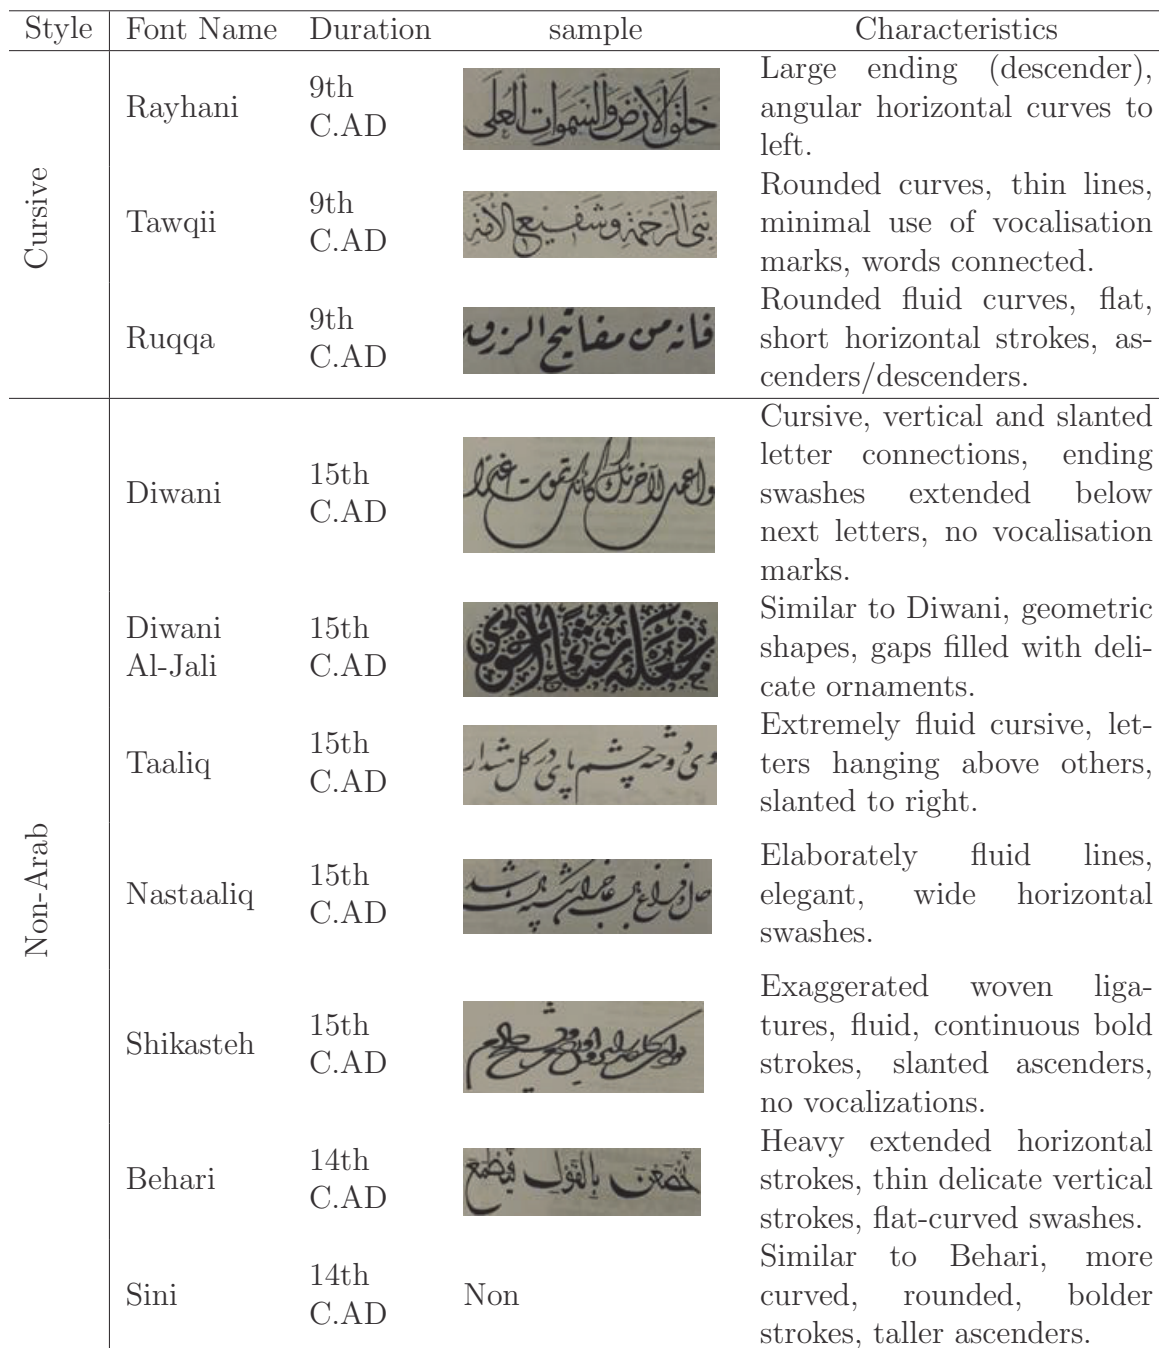 Style Font Name Duration sample Characteristics
Cursive
Rayhani
9th
C.AD
خَلَقَ الْأَرْضَ وَالسَّمَوَاتِ الْعُلَى
Large ending (descender),
angular horizontal curves to
left.
Tawqii
9th
C.AD
نَبِيِّ الرَّحْمَةِ وَشَفِيعِ الْأُمَّةِ
Rounded curves, thin lines,
minimal use of vocalisation
marks, words connected.
Ruqqa
9th
C.AD
فانه من مفاتيح الرزق
Rounded fluid curves, flat,
short horizontal strokes, as-
cenders/descenders.
Non-Arab
Diwani
15th
C.AD
واعمل لآخرتك كأنك تموت غدا
Cursive, vertical and slanted
letter connections, ending
swashes extended below
next letters, no vocalisation
marks.
Diwani
Al-Jali
15th
C.AD
Similar to Diwani, geometric
shapes, gaps filled with deli-
cate ornaments.
Taaliq
15th
C.AD
Extremely fluid cursive, let-
ters hanging above others,
slanted to right.
Nastaaliq
15th
C.AD
Elaborately fluid lines,
elegant, wide horizontal
swashes.
Shikasteh
15th
C.AD
Exaggerated woven liga-
tures, fluid, continuous bold
strokes, slanted ascenders,
no vocalizations.
Behari
14th
C.AD
تَخْضَعْنَ بِالْقَوْلِ فَيَطْمَعَ
Heavy extended horizontal
strokes, thin delicate vertical
strokes, flat-curved swashes.
Sini
14th
C.AD
Non
Similar to Behari, more
curved, rounded, bolder
strokes, taller ascenders.